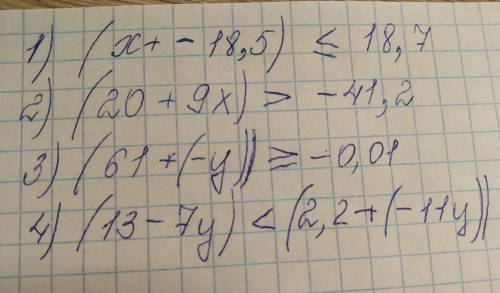 1) (x + - 18,5) ≤ 18,7
2) (20 + 9x) > -41,2
3) (61 + (-y)) ≥ -0,01
4) (13 - 7y) < (2,2 + (-11y))